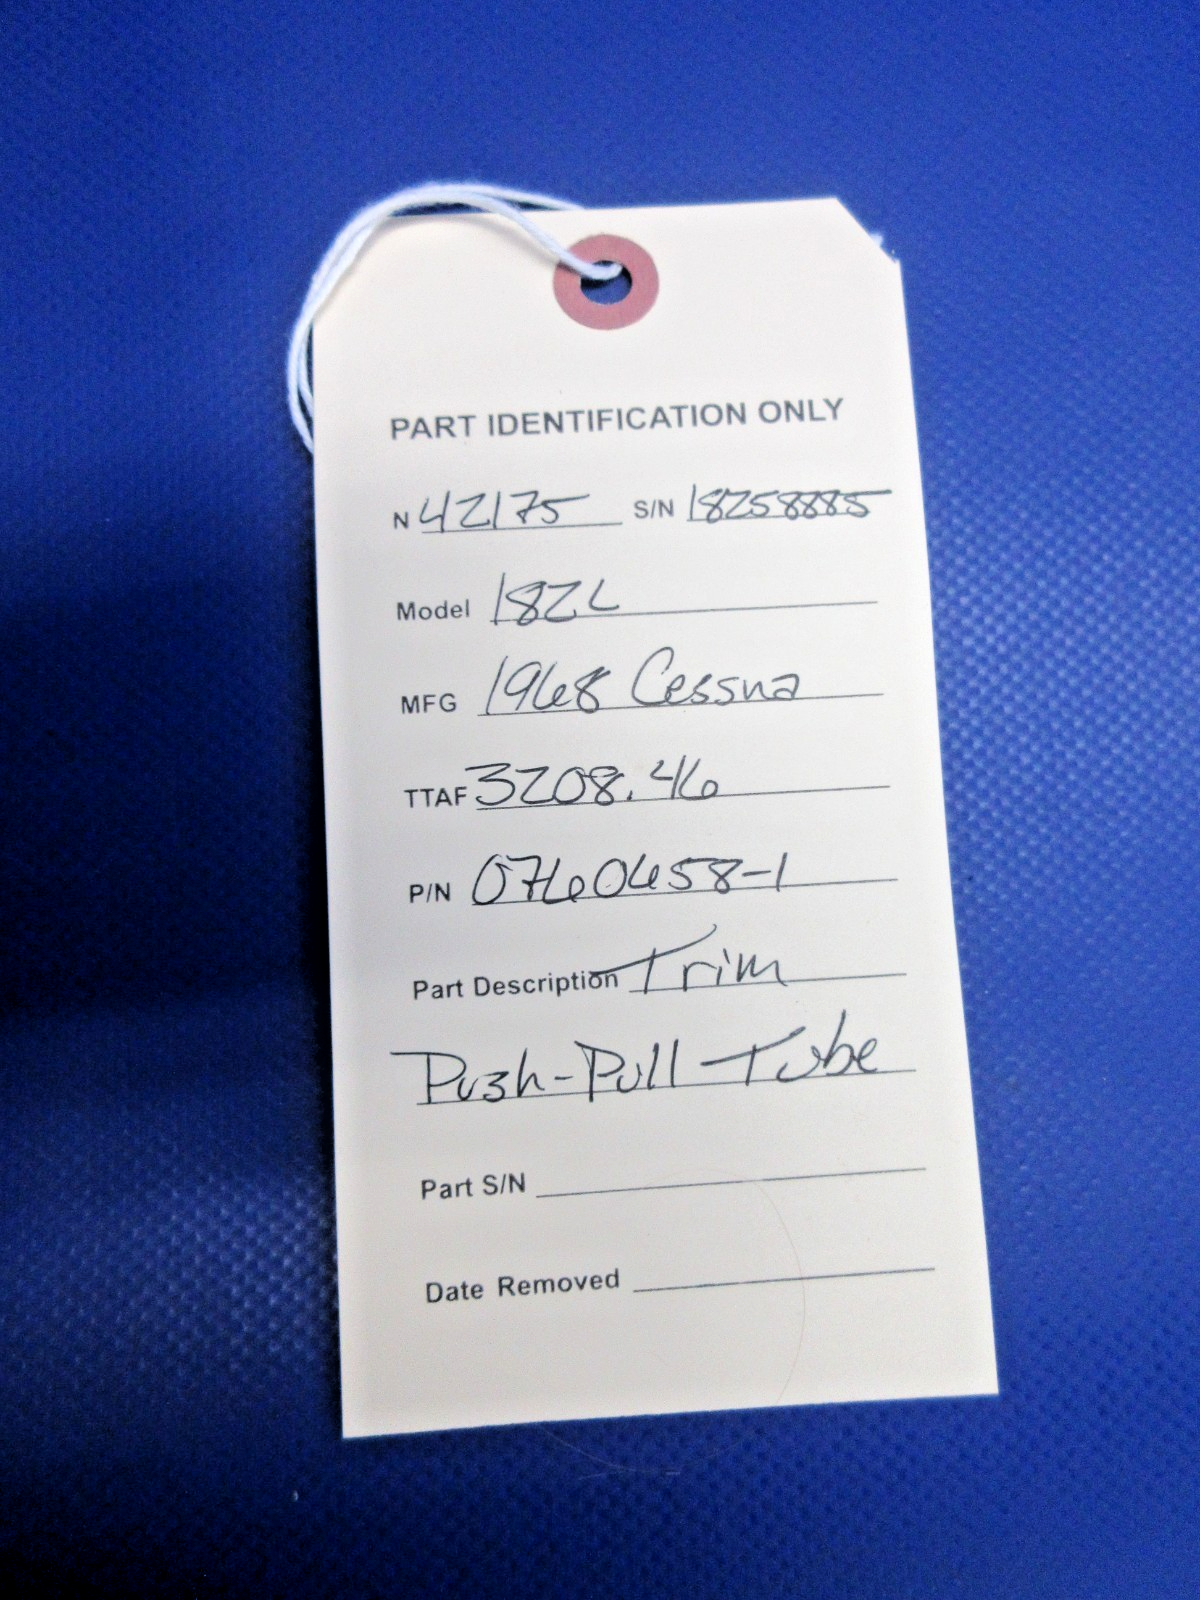 PART IDENTIFICATION ONLY
N 42175 S/N 18258885
Model 182L
MFG 1968 Cessna
TTAF 3208.46
P/N 0760658-1
Part Description Trim
Push-Pull Tube
Part S/N
Date Removed